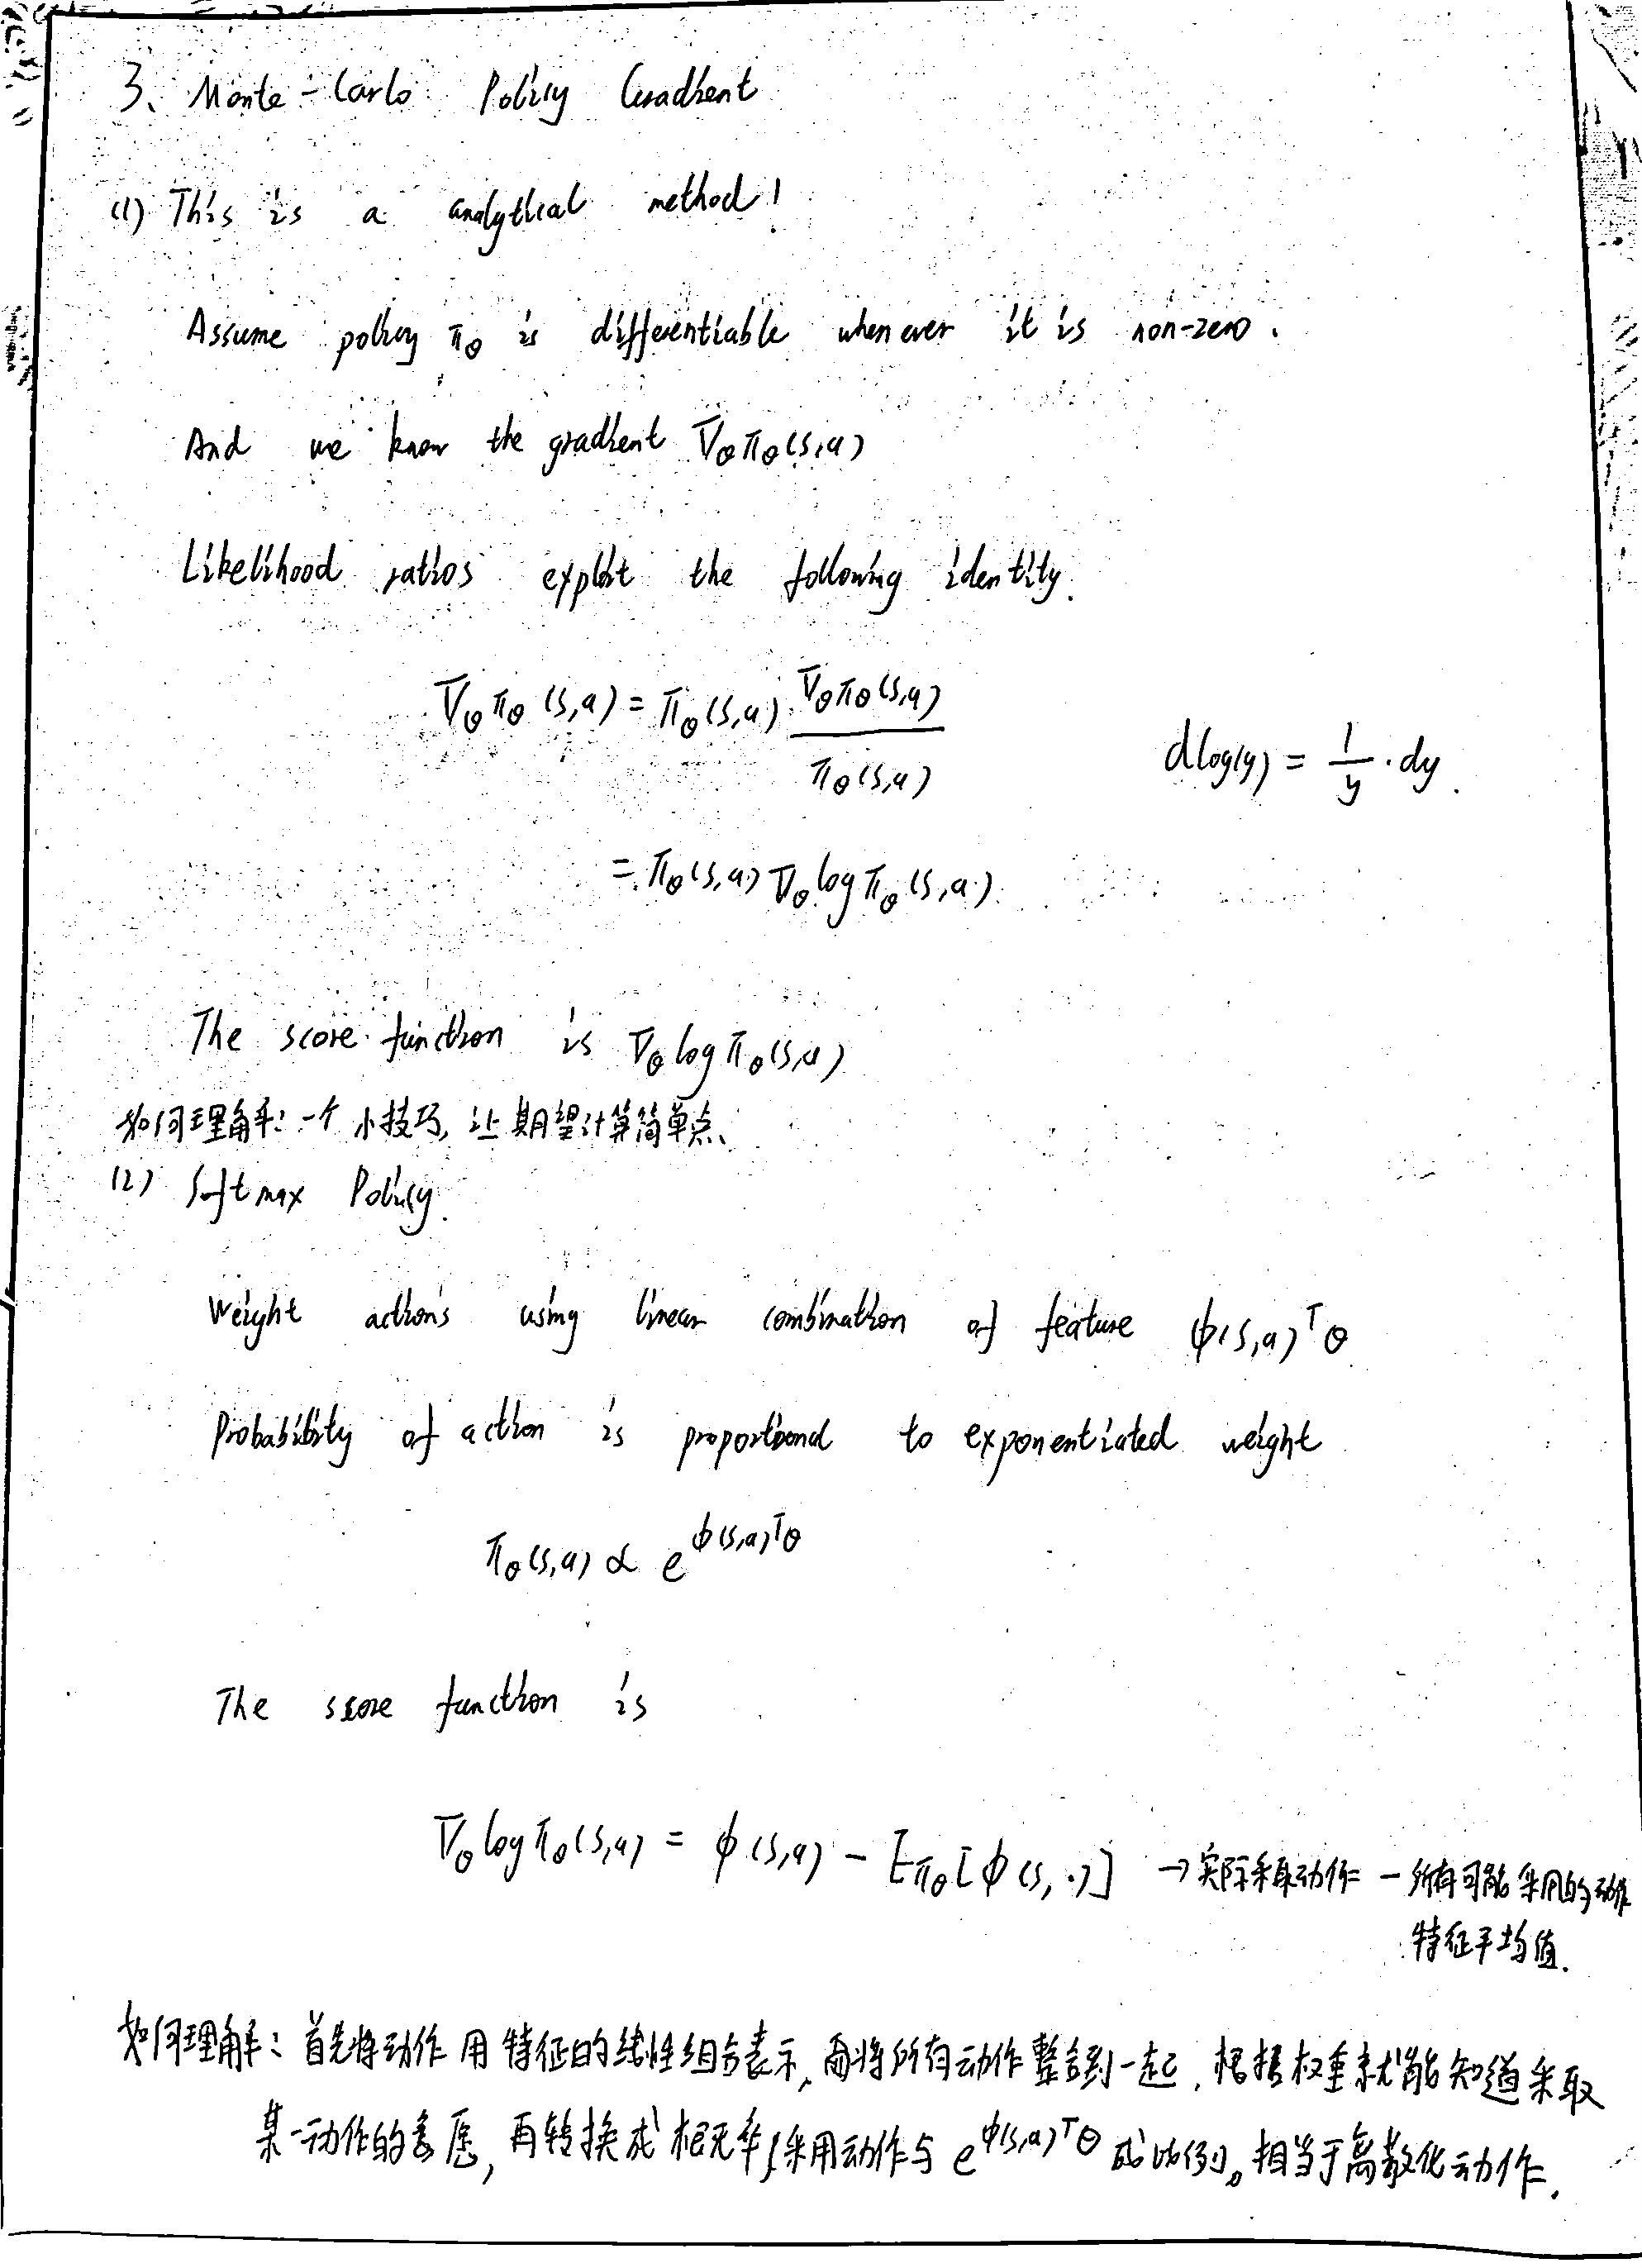 3、Monte-Carlo Policy Gradient
(1) This is a analytical method!
Assume policy π_θ is differentiable whenever it is non-zero.
And we know the gradient ∇_θ π_θ(s,a)
Likelihood ratios exploit the following identity.
∇_θ π_θ(s,a) = π_θ(s,a) ∇_θ π_θ(s,a) / π_θ(s,a)
dlog(y) = 1/y · dy.
= π_θ(s,a) ∇_θ log π_θ(s,a)
The score function is ∇_θ log π_θ(s,a)
如何理解：一个小技巧，让期望计算简单点、
(2) Softmax Policy.
Weight actions using linear combination of feature φ(s,a)^T θ
Probability of action is proportional to exponentiated weight
π_θ(s,a) ∝ e^{φ(s,a)^T θ}
The score function is
∇_θ log π_θ(s,a) = φ(s,a) − E_{π_θ}[φ(s,·)] → 实际采取动作 − 所有可能采用的动作
特征平均值.
如何理解：首先将动作用特征的线性组合表示，而将所有动作整合到一起，根据权重就能知道采取
某一动作的意愿，再转换成概率，采用动作与 e^{φ(s,a)^T θ} 成比例。相当于离散化动作.